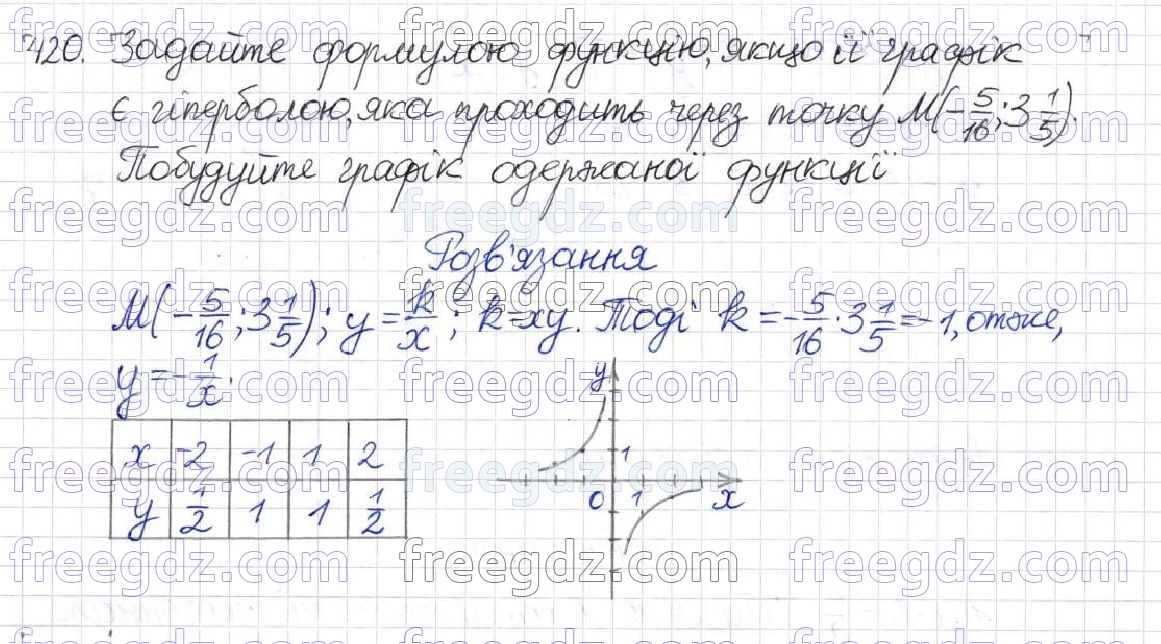 420. Задайте формулою функцію, якщо її графік
є гіперболою, яка проходить через точку M(-5/16; 3 1/5).
Побудуйте графік одержаної функції
Розв'язання
M(-5/16; 3 1/5); y = k/x; k=xy. Тоді k = -5/16 · 3 1/5 = -1, отже,
y = -1/x.
x -2 -1 1 2
y 1/2 1 1 1/2
y
1
0 1 x
freegdz.com